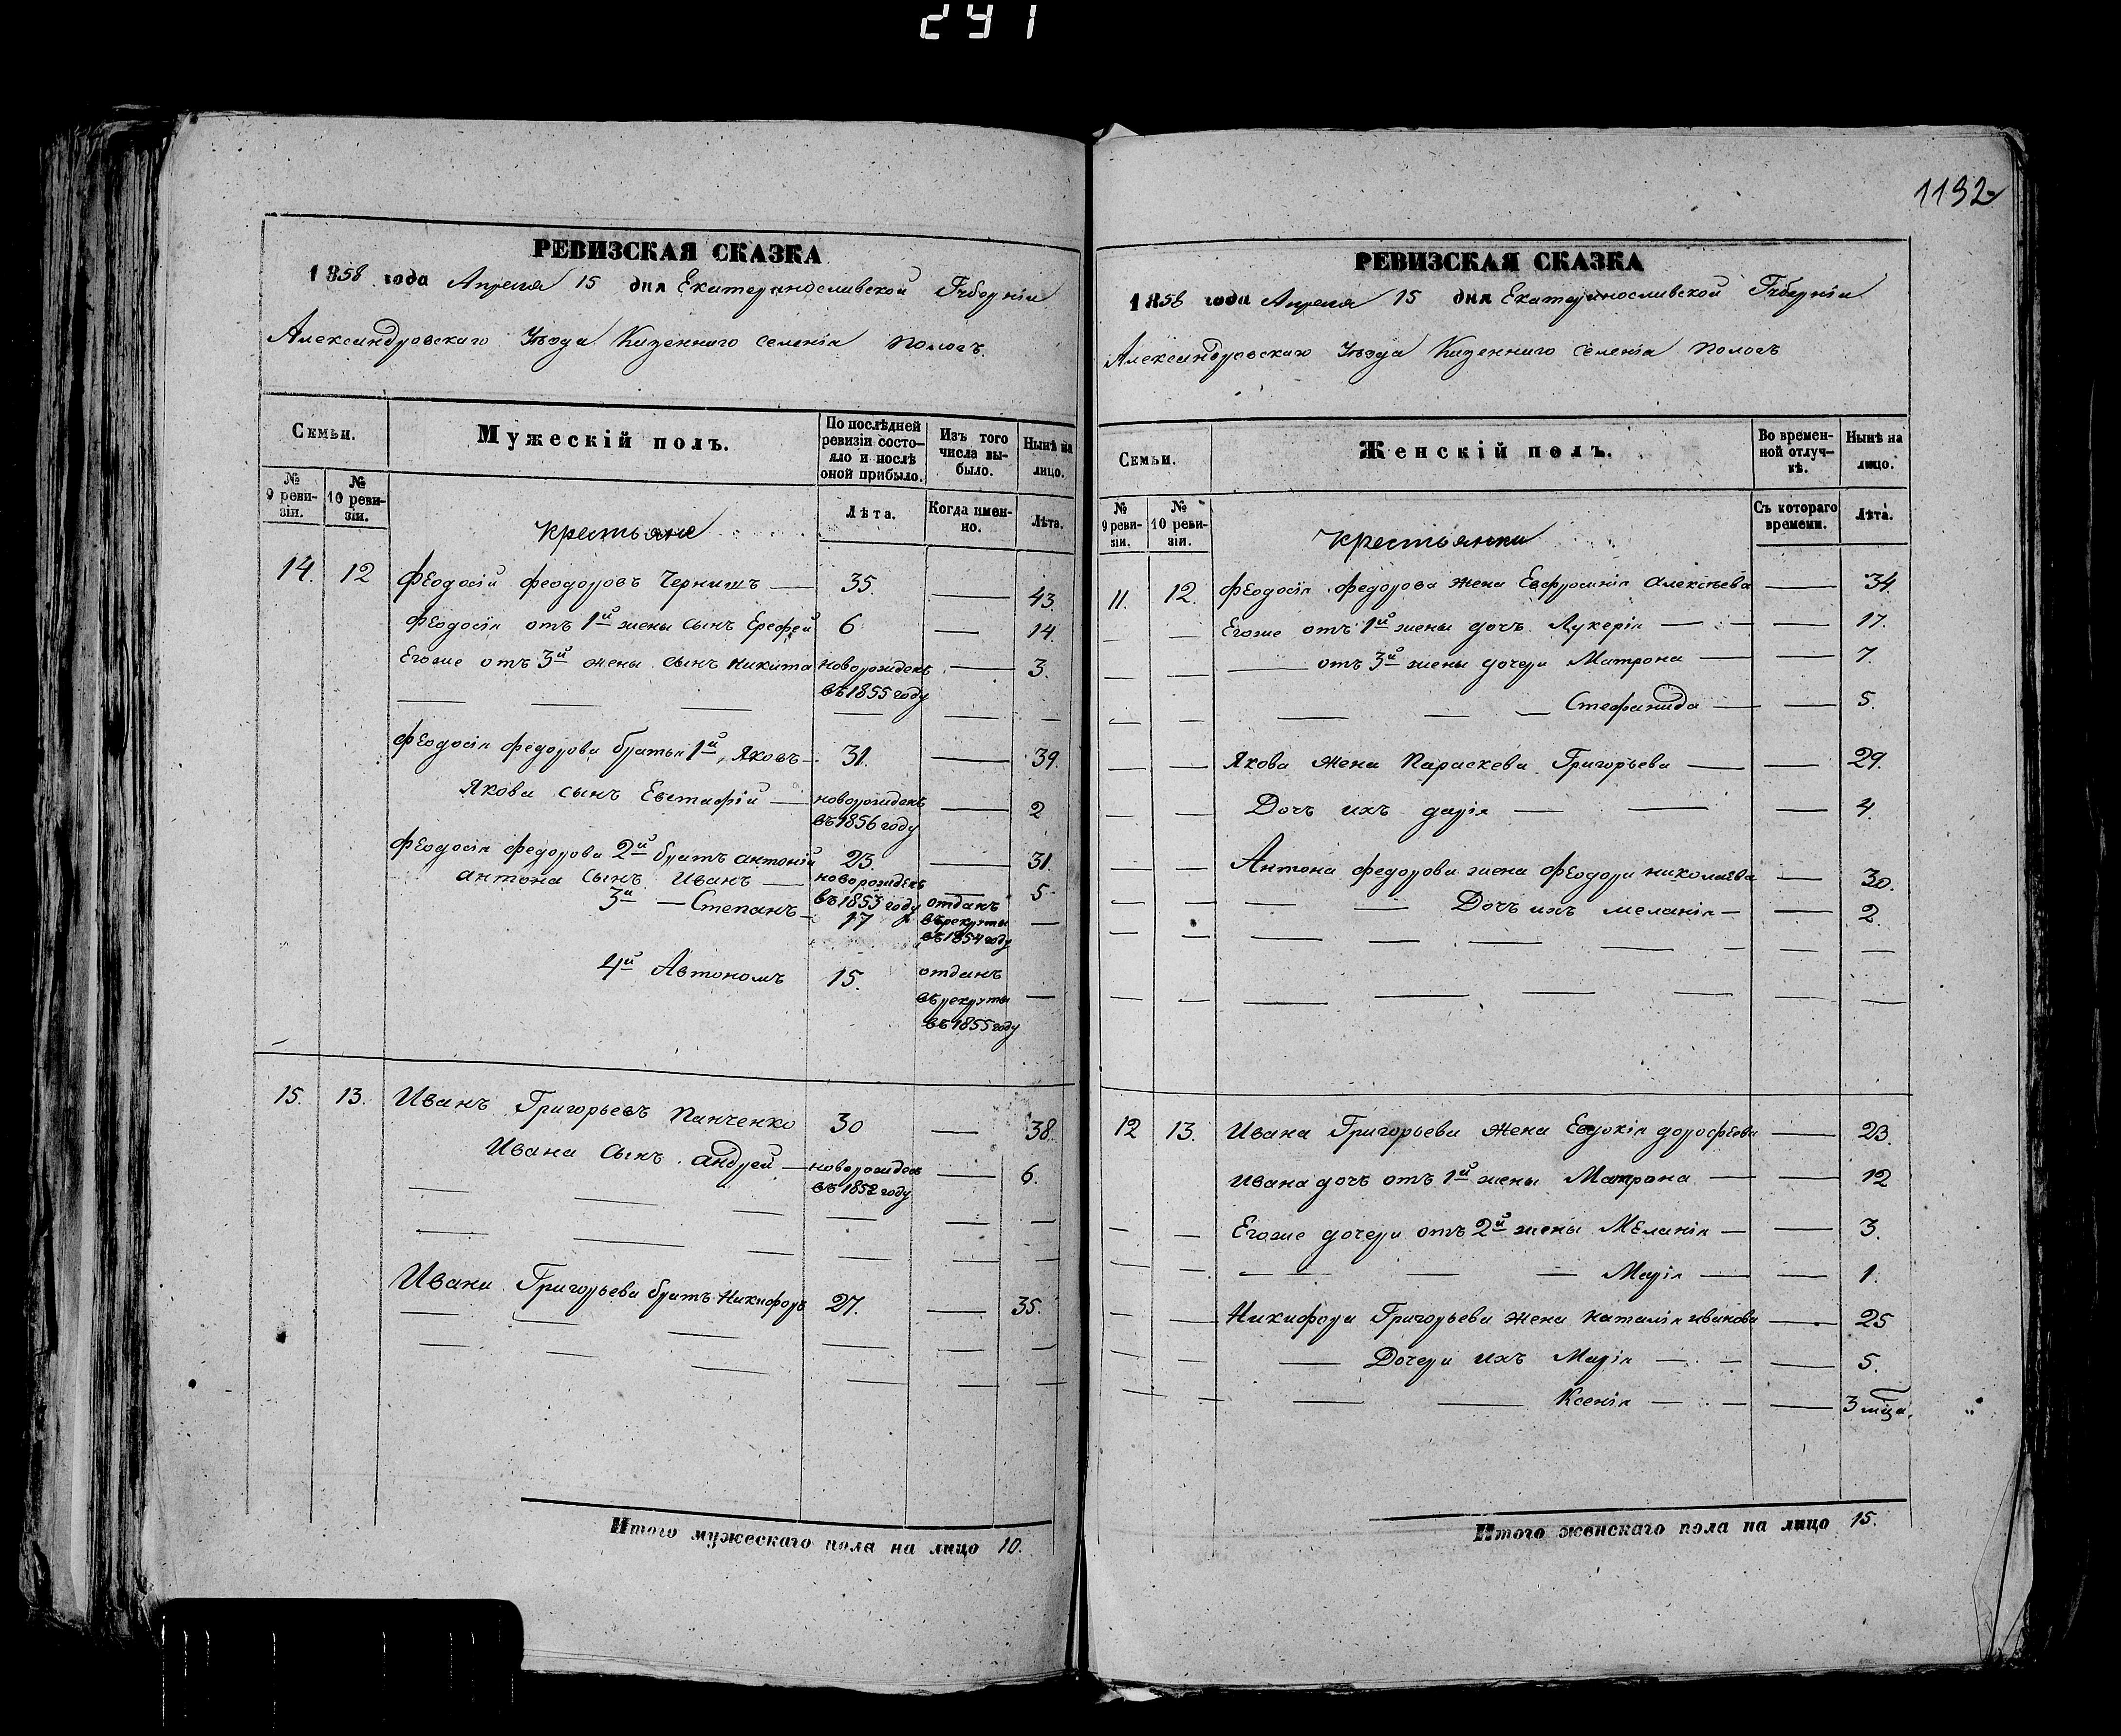 291
РЕВИЗСКАЯ СКАЗКА
1858 года Апреля 15 дня Екатеринославской Губерніи
Александровскаго Уѣзда Казеннаго селенія Пологъ
Семьи.
Мужескій полъ.
По послѣдней ревизіи состояло и послѣ оной прибыло.
Изъ того числа выбыло.
Нынѣ на лицо.
№ 9 ревизіи.
№ 10 ревизіи.
Лѣта.
Когда именно.
Лѣта.
Крестьяне
14. 12 Феодосій Феодоровъ Чернишъ — 35. — 43.
Феодосія отъ 1й жены сынъ Ерофей 6 — 14.
Егоже отъ 3й жены сынъ Никита новорожденъ — 3.
въ 1855 году
Феодосія Федорова братья 1й Яковъ — 31. — 39.
Якова сынъ Евстафій — новорожденъ — 2
въ 1856 году
Феодосія Федорова 2й братъ Антоній 23. — 31.
Антона сынъ Иванъ — новорожденъ — 5
въ 1853 году
3й — Степанъ — 17 отданъ —
въ рекруты
въ 1854 году
4й Автономъ 15. отданъ
въ рекруты —
въ 1855 году
15. 13. Иванъ Григорьевъ Панченко 30 — 38.
Ивана сынъ Андрей — новорожденъ — 6.
въ 1852 году
Ивана Григорьева братъ Никифоръ 27. — 35.
Итого мужескаго пола на лицо 10.
1192
РЕВИЗСКАЯ СКАЗКА
1858 года Апреля 15 дня Екатеринославской Губерніи
Александровскаго Уѣзда Казеннаго селенія Пологъ
Семьи.
Женскій полъ.
Во временной отлучкѣ.
Нынѣ на лицо.
№ 9 ревизіи.
№ 10 ревизіи.
Съ котораго времени.
Лѣта.
Крестьянки
11. 12. Феодосія Федорова жена Евфросинія Алексѣева — 34.
Егоже отъ 1й жены дочъ Лукерія — 17.
— отъ 3й жены дочери Матрона — 7.
Стефанида — 5.
Якова жена Параскева Григорьева — 29.
Дочъ ихъ Дарія — 4.
Антона Федорова жена Феодора Николаева — 30.
Дочъ ихъ Меланія — 2.
12 13. Ивана Григорьева жена Евдокія Дорофеева — 23.
Ивана дочъ отъ 1й жены Матрона — 12
Егоже дочери отъ 2й жены Меланія — 3.
Марія — 1.
Никифора Григорьева жена Наталія Иванова — 25
Дочери ихъ Марія — 5.
Ксенія — 3 мца.
Итого женскаго пола на лицо 15.